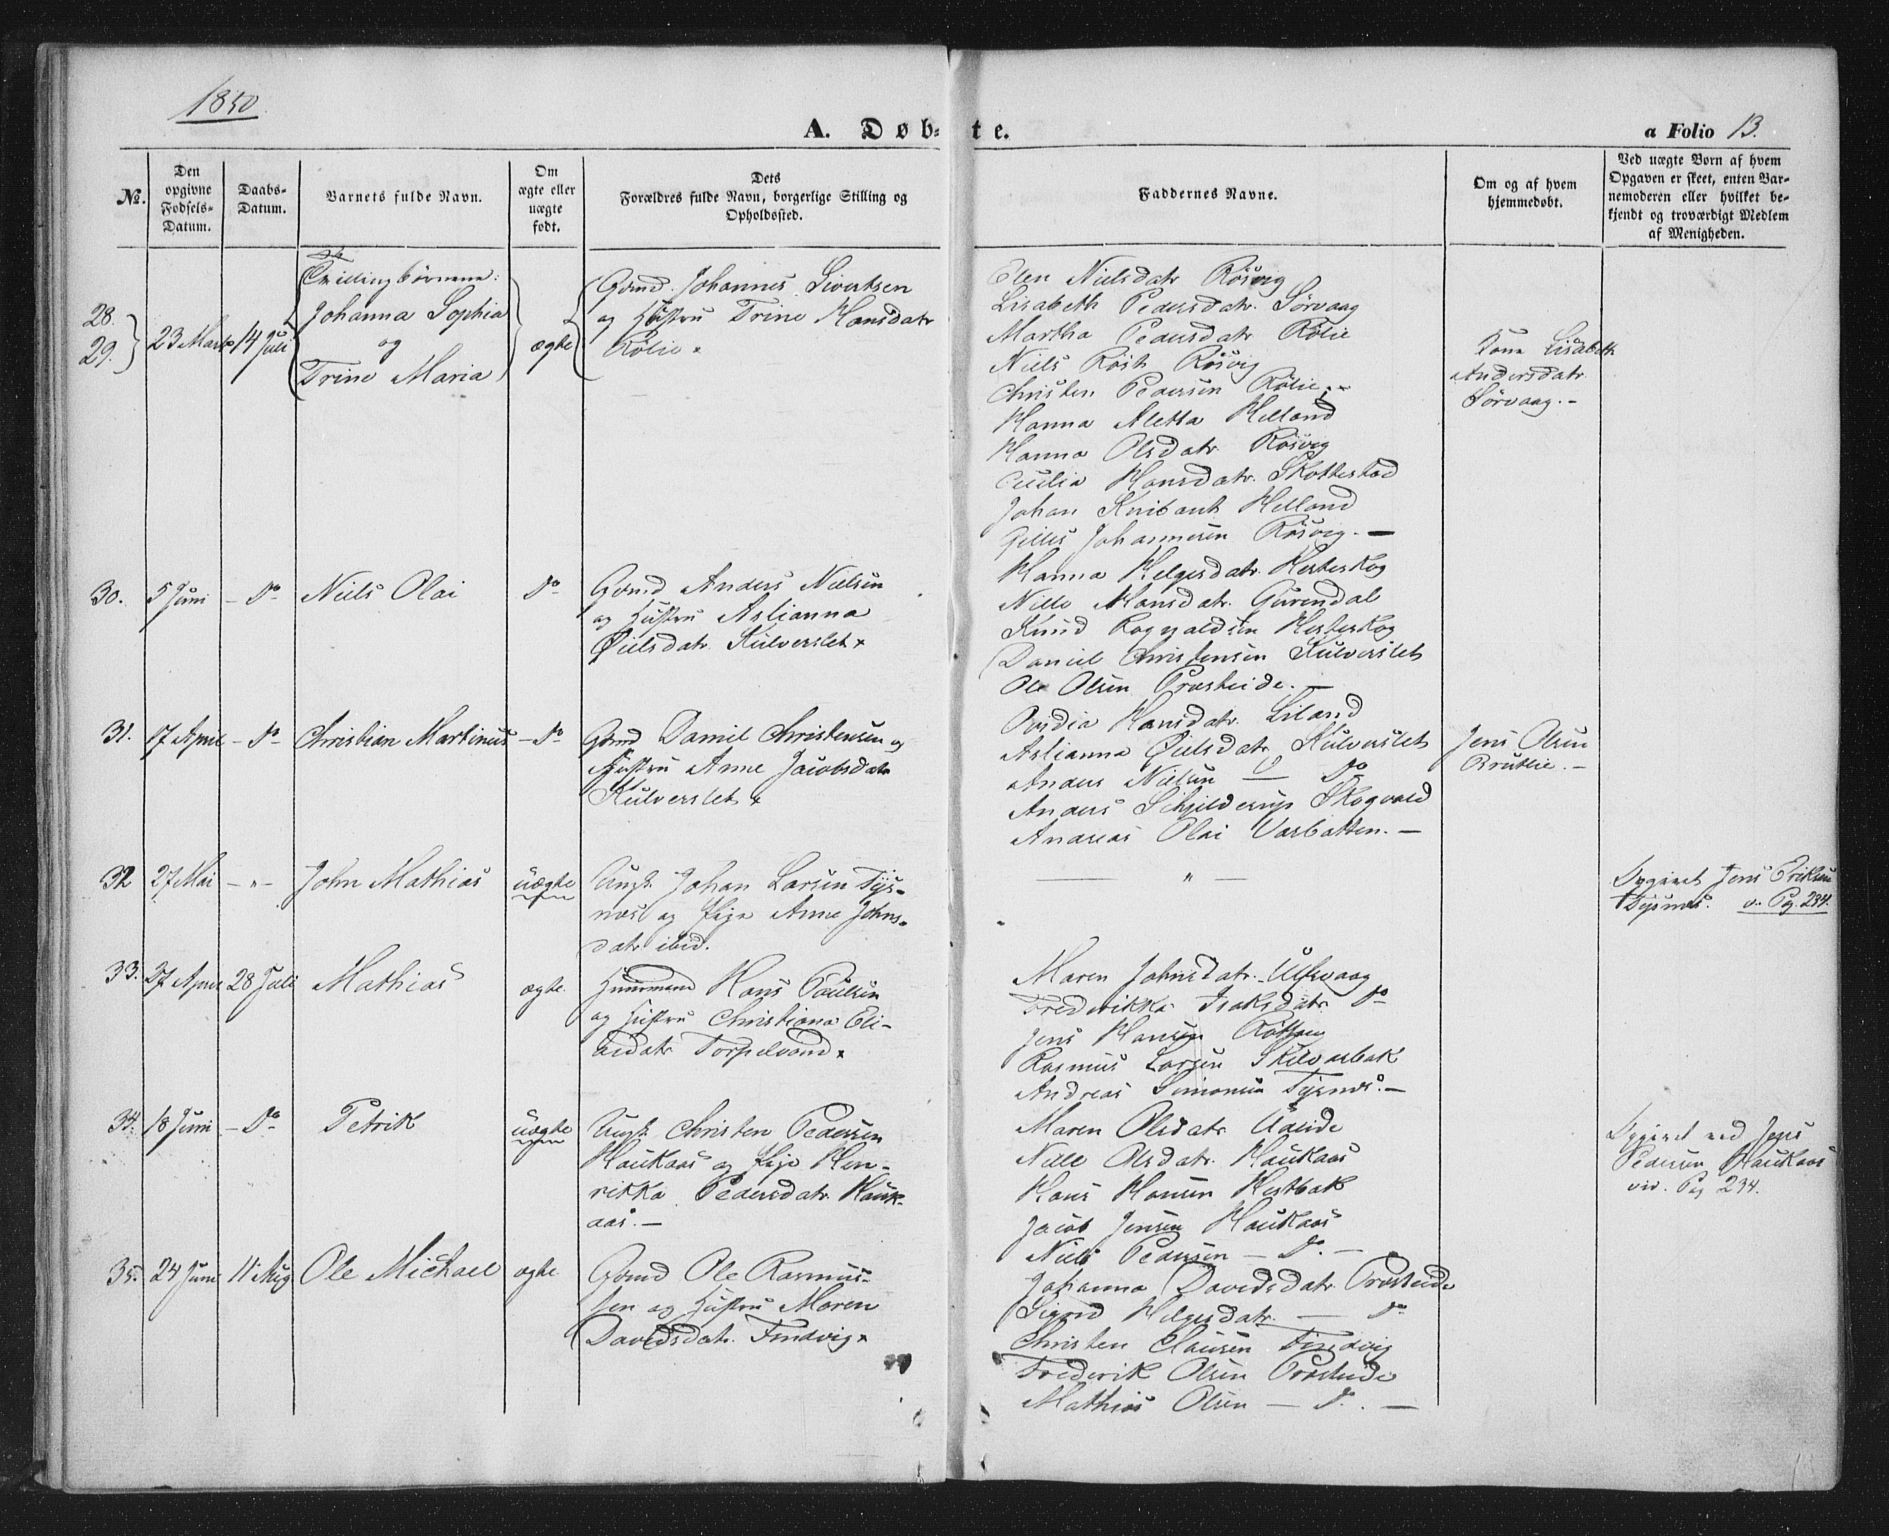 1850.
A. Døb-
te.
a Folio 13.
No.
Den
opgivne
Fødsels-
Datum.
Daabs-
Datum.
Barnets fulde Navn.
Om
ægte eller
uægte
født.
Dets
Forældres fulde Navn, borgerlige Stilling og
Opholdssted.
Faddernes Navne.
Om og af hvem
hjemmedøbt.
Ved uægte Børn af hvem
Opgaven er skeet, enten Bar-
nemoderen eller hvilket be-
kjendt og troværdigt Medlem
af Menigheden.
28.
29.
23 Marts
14 Juli
Tvillingbørnene:
Johanna Sophia
og
Trine Maria
ægte
Gbmd. Johannes Sivertsen
og Hustru Trine Hansdatr
Rølie
Elen Nielsdatr Røsvig
Lisabeth Pedersdatr. Sørvaag
Martha Pedersdatr Rølie
Niels Røst Røsvig
Christen Pedersen Rølie
Hanna Aletta Helland
Hanna Olsdatr. Røsvig
Cecilia Hansdatr. Skottestad
Johan Helland
Gilles Johannesen Røsvig. —
Kone Lisabeth
Andersdatr
Sørvaag. -
30.
5 Juni
- Do
Niels Olai
Do
Gbmd Anders Nielsen
og Hustru Aslianna
Øielsdatr. Kulverslet
Hanna Helgesdatr. Hesteskog
Nille Hansdatr.
Knud Rognaldsen Hesteskog
Daniel Christensen Kulverslet
Ole Olsen Præsteide. —
31.
17 April
- Do
Christian Martinus
- Do
Gbmd Daniel Christensen og
Hustru Anne Jacobsdatr
Kulverslet
Hansdatr. Liland
Aslianna Øielsdatr. Kulverslet
Anders Nielsen — Do
Anders Schjelderup Skogvold
Andreas Olai Varbatten. —
Jens Olsen
32
27 Mai
- " -
John Mathias
uægte
Ungk. Johan Larsen Tys-
nes og Pige Anne Johns-
datr ibid.
— " —
Opgivet Jens Eriksen
Tysnes. v. Pg. 234.
33.
27 April
28 Juli
Mathias
ægte.
Huusmand Hans Paulsen
og Hustru Christiana Eli-
asdatr Torpelvand
Maren Johnsdatr. Ulfsvaag
Frederikka Isaksdatr. Do
Jens Hansen
Rasmus Larsen Skilvasbak
Andreas Simonsen Tysnes. —
34.
18 Juni
- Do
Petrik
uægte
Ungk. Christen Pedersen
Haukaas og Pige Hen-
rikka Pedersdatr. Hauk-
aas. —
Maren Olsdatr.
Nille Olsdatr. Haukaas
Hans Hansen Hestbak
Jacob Jensen Haukaas
Niels Pedersen — Do. —
Opgivet ved Jens
Pedersen Haukaas
vid. Pag 234.
35.
24 Juni
11 Aug
Ole Michael
ægte.
Gbmd Ole Rasmus-
sen og Hustru Maren
Davidsdatr. Findvig
Johanna Davidsdatr. Præsteide
Sigrid Helgesdatr. — Do
Christen Clausen Findvig
Frederik Olsen Præsteide
Mathias Olsen — Do. —